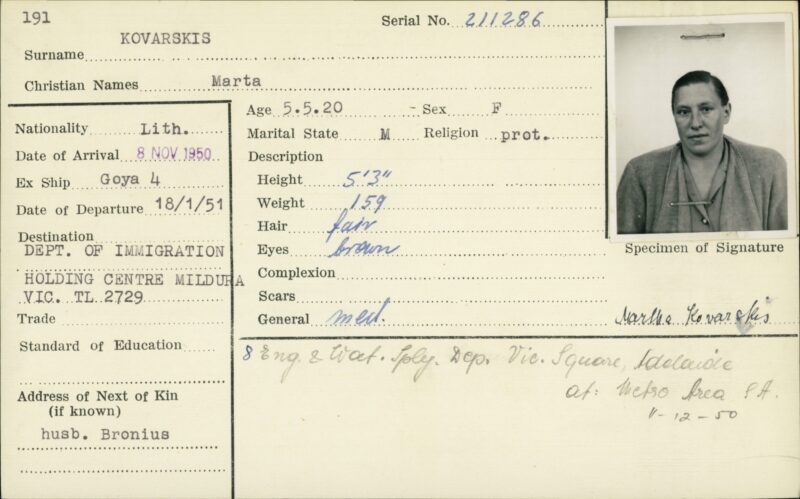 191
Serial No. 211286
KOVARSKIS
Surname
Christian Names Marta
Nationality Lith.
Date of Arrival 8 NOV 1950
Ex Ship Goya 4
Date of Departure 18/1/51
Destination
DEPT. OF IMMIGRATION
HOLDING CENTRE MILDURA
VIC. TL 2729
Trade
Standard of Education
Address of Next of Kin
(if known)
husb. Bronius
Age 5.5.20 - Sex F
Marital State M Religion prot.
Description
Height 5'3"
Weight 159
Hair fair
Eyes brown
Complexion
Scars
General med.
Specimen of Signature
Martha Kovarskis
8 Eng. & Wat. Sply. Dep. Vic. Square, Adelaide
at: Metro Area S.A.
11-12-50